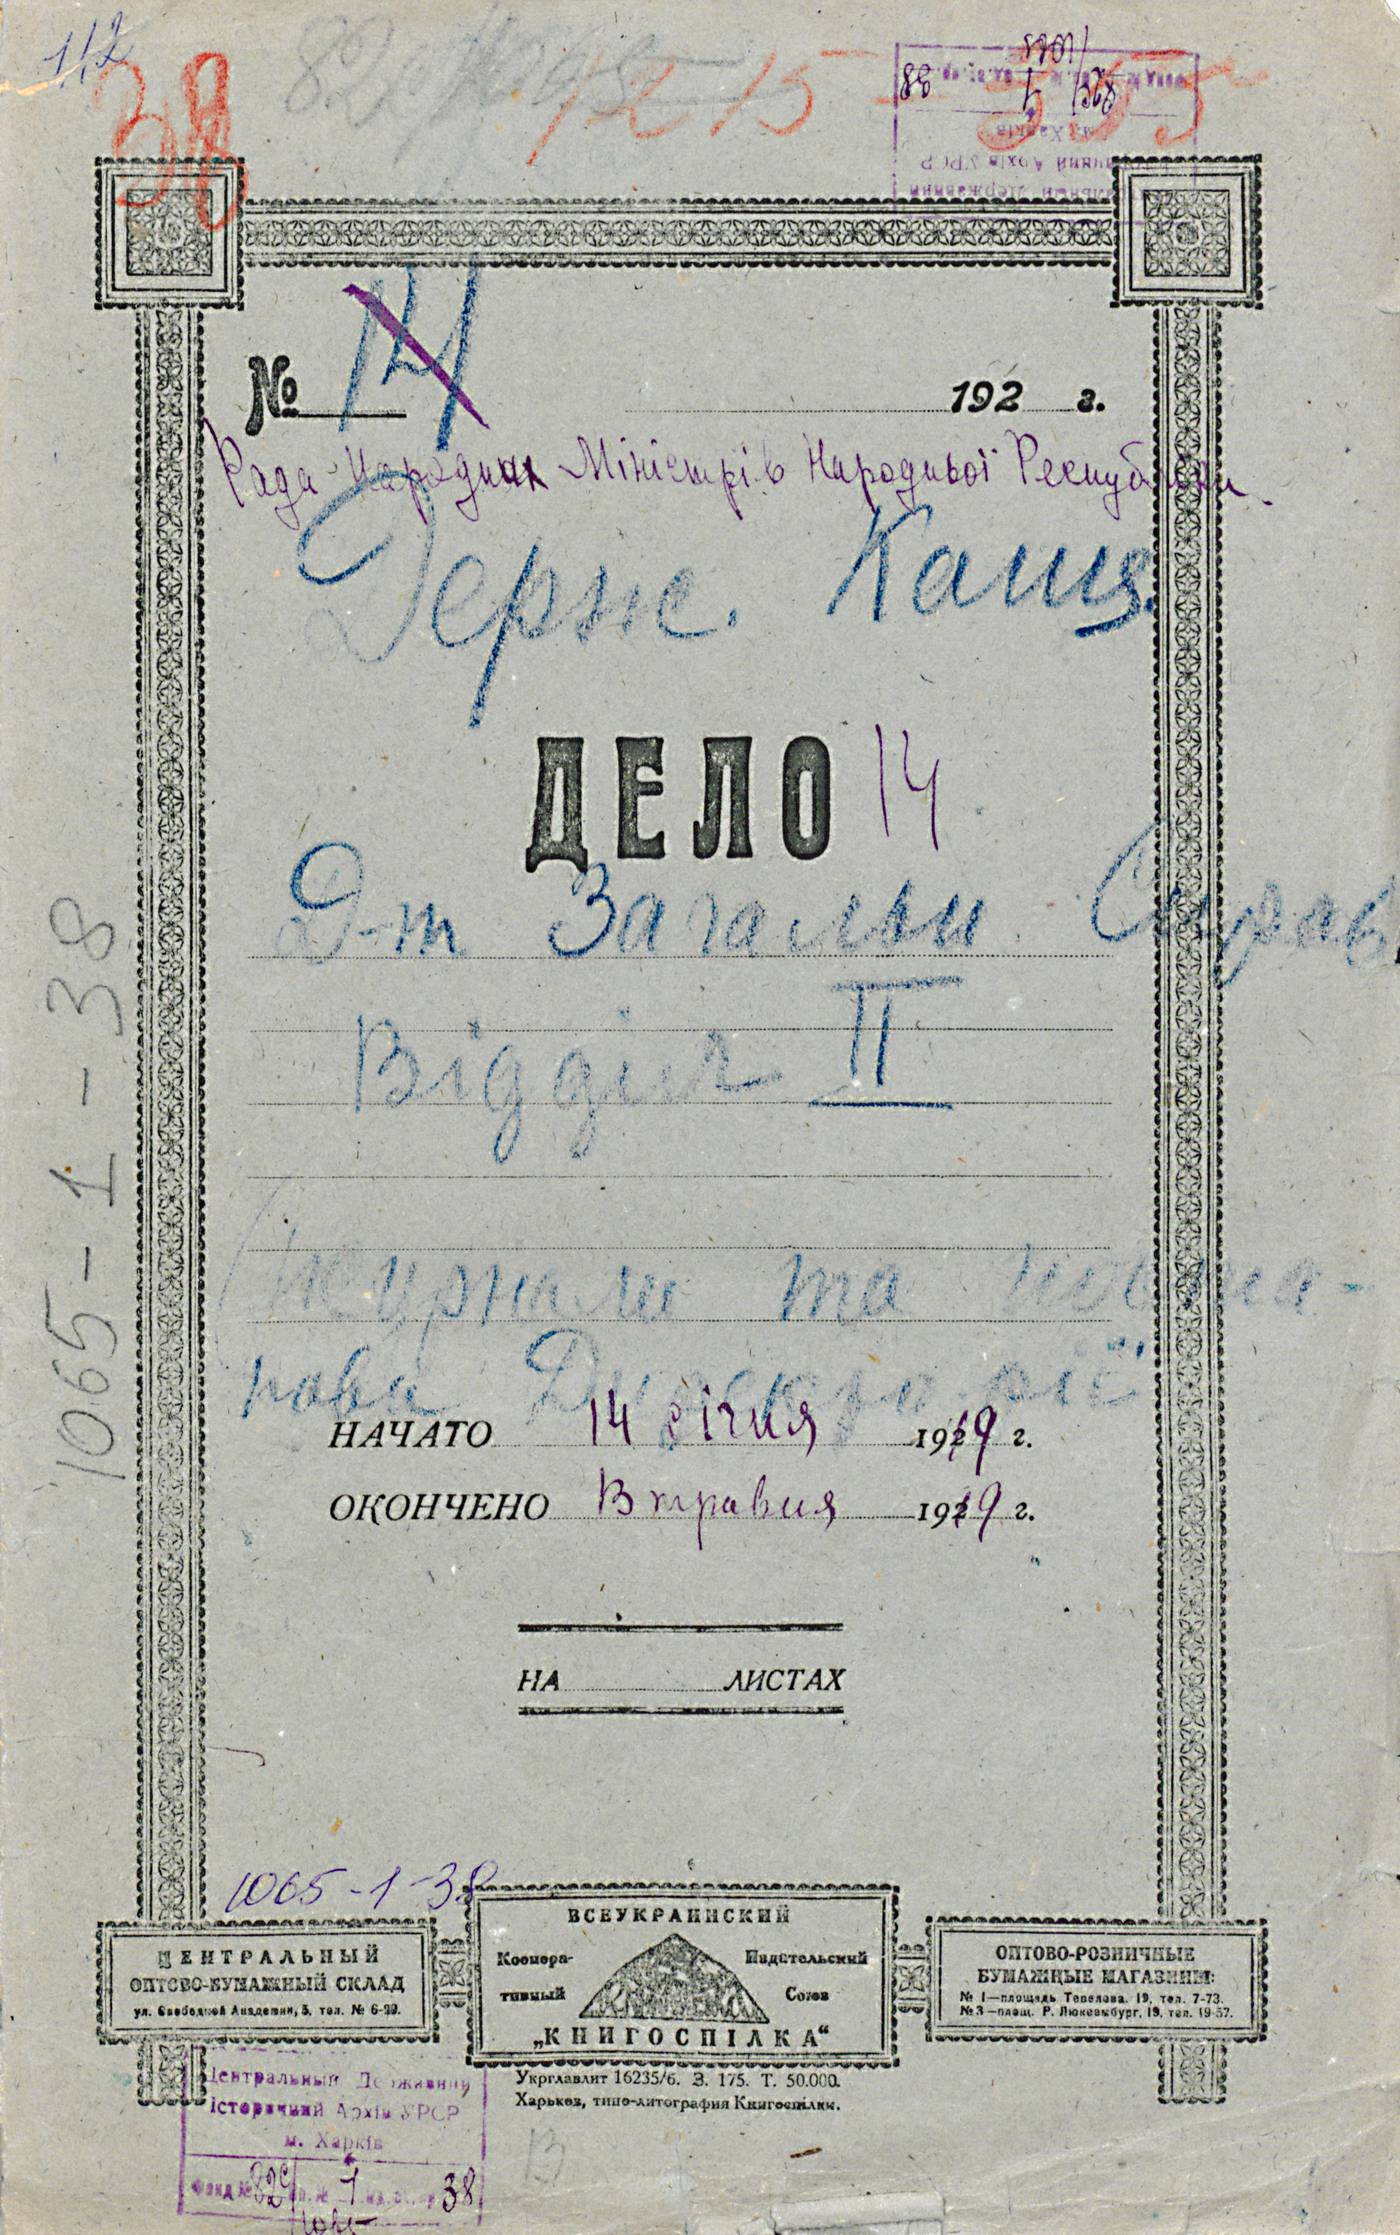 112
38
12 15 - 355
Центральний Державний
Історичний Архів УРСР
м. Харків
Фонд № 824 оп. № 1 од. зб. № 38
1065
№ 14 192 г.
Рада Народних Міністрів Народньої Республіки.
Держ. Канц.
ДЕЛО 14
Д-т Загальн. Справ
Відділ II
Журнали та
Директорії
НАЧАТО 14 січня 1919 г.
ОКОНЧЕНО 13 травня 1919 г.
НА ЛИСТАХ
1065-1-38
1065-1-38
ЦЕНТРАЛЬНЫЙ
ОПТОВО-БУМАЖНЫЙ СКЛАД
ул. Свободной Академии, 5, тел. № 6-20.
ВСЕУКРАИНСКИЙ
Коопера- Издательский
тивный Союз
„КНИГОСПІЛКА“
ОПТОВО-РОЗНИЧНЫЕ
БУМАЖНЫЕ МАГАЗИНЫ:
№ 1—площадь Тевелева, 19, тел. 7-73.
№ 3—площ. Р. Люксембург, 19, тел. 19-57.
Укрглавлит 16235/б. З. 175. Т. 50.000.
Харьков, типо-литография Книгоспілки.
Центральный Державний
Історичний Архів УРСР
м. Харків
Фонд № 824 оп. № 1 од. зб. № 38
1065
13